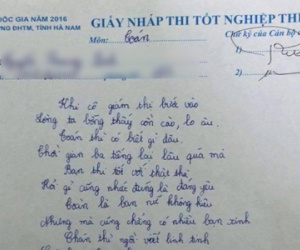 ỐC GIA NĂM 2016
NG ĐHTM, TỈNH HÀ NAM
GIẤY NHÁP THI TỐT NGHIỆP TH
Môn: Toán
Chữ ký của Cán bộ c
1)
2)
Khi cô giám thị bước vào
Lòng ta bỗng thấy cồn cào, lo âu.
Toán thì có biết gì đâu
Thời gian ba tiếng lại lâu quá mà
Bạn thì tốt với
Hỏi gì cũng nhất đúng là đáng yêu
Còn là bạn nữ không hiểu
Nhưng mà cũng chẳng có nhiều bạn xinh
Chán thì ngồi viết linh tinh